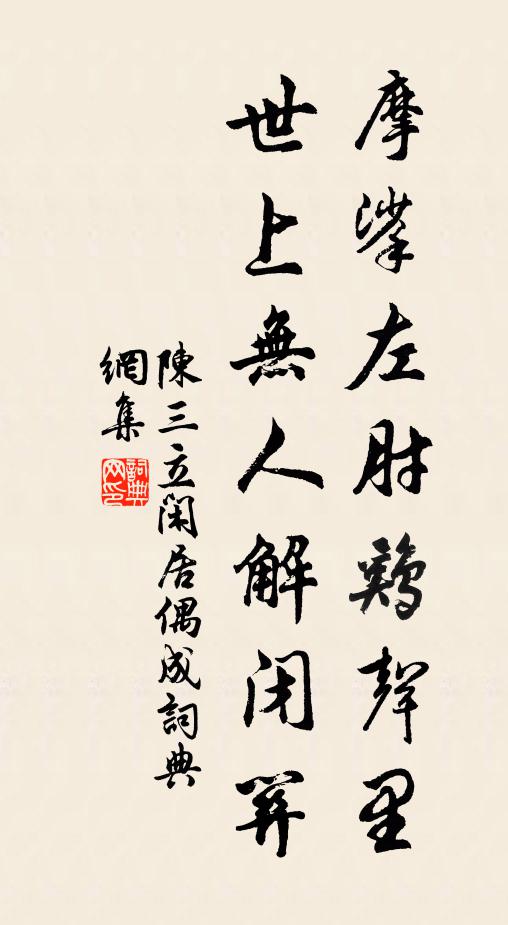 摩挲左肘鷄聲里
世上無人解閉關
陳三立閑居偶成詞典
網集
詞典網印